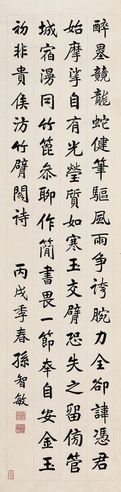 醉墨競龍蛇健筆驅風雨爭誇腕力全卻諱憑君
始摩挲自有光瑩質如寒玉交臂恐失之留備管
城宿漫同竹篦參聊作簡書畏一節奉自安金玉
初非貴侯汸竹臂閣詩 丙戌季春孫智敏